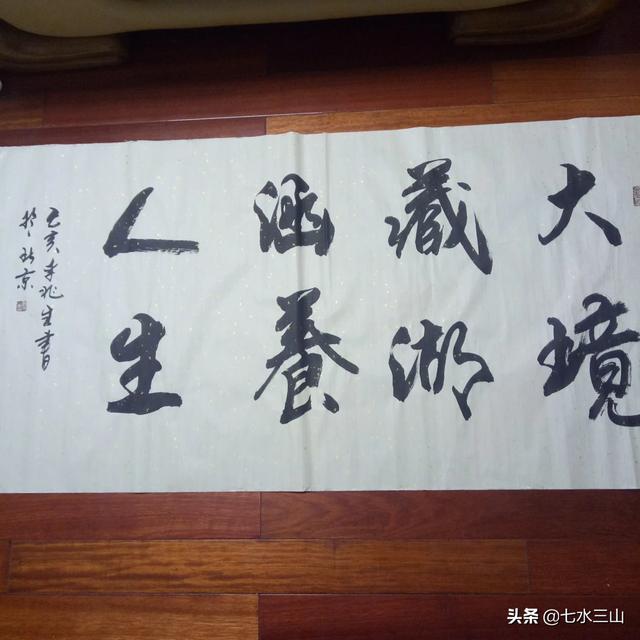 大境
藏湖
涵養
人生
己亥 兆生書
於北京
头条 @七水三山